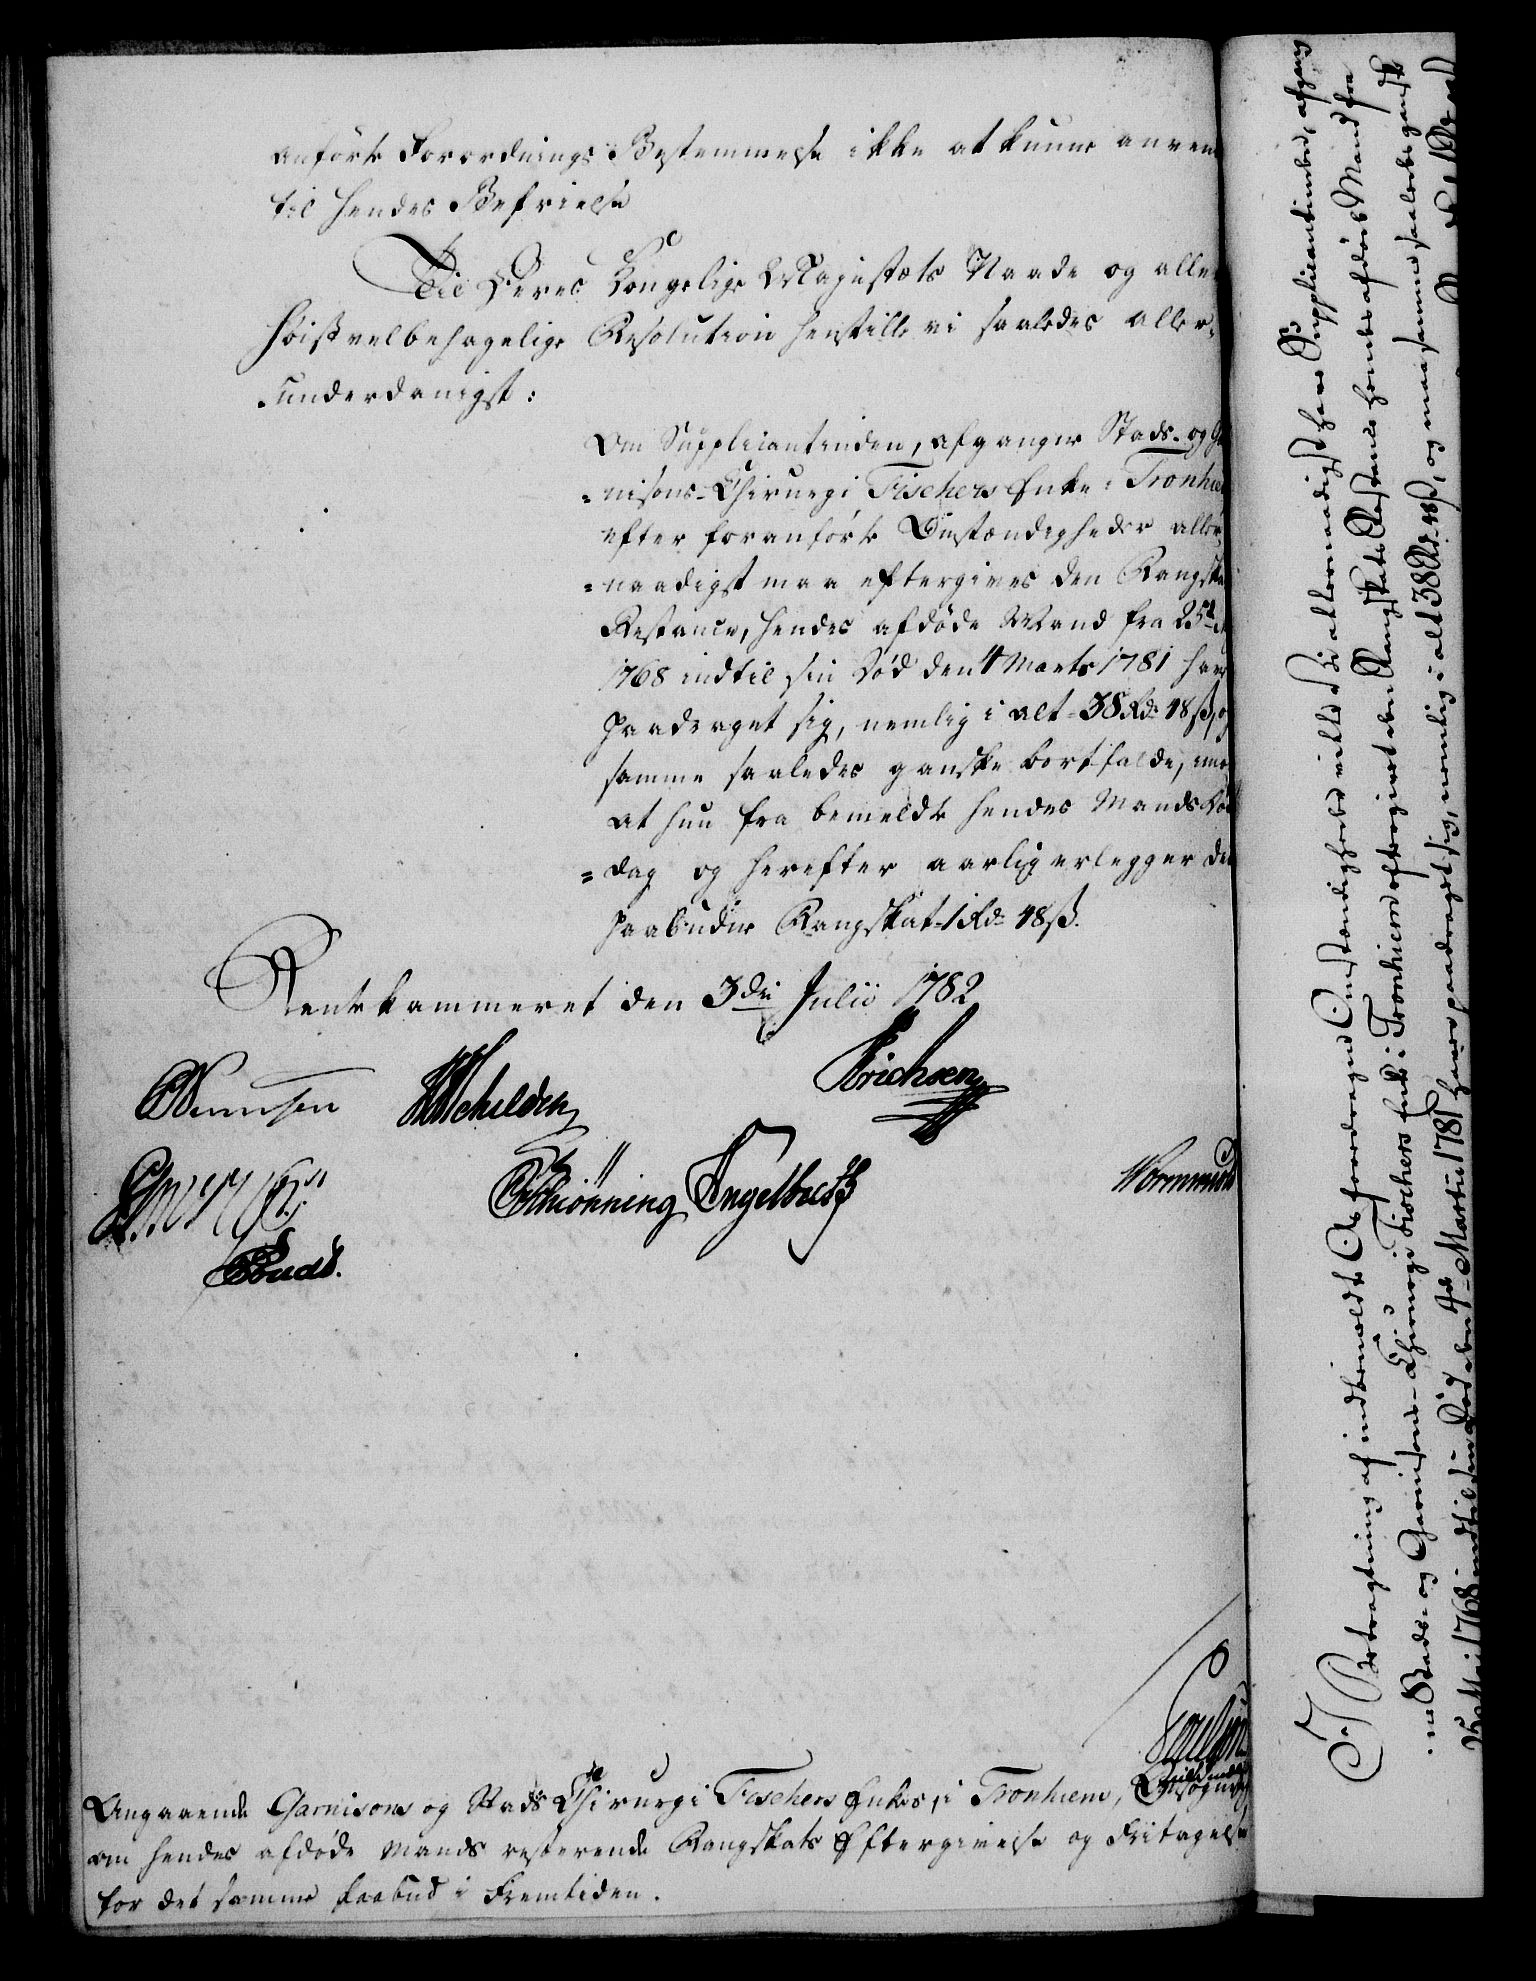 anførte Forordnings Bestemmelse ikke at kunne anven
til hendes Befrielse
Til Deres Kongelige Majestæts Naade og aller
høistvelbehagelige Resolution henstille vi saaledes aller-
underdanigst:
Om Supplicantinden, afgangne Stads- og G
nisons-Chirurgi Fischers Enke i Tronhie
efter foranførte Omstændigheder aller-
naadigst maa eftergives den Rangska
Restance, hendes afdøde Mand fra 25de
1768 indtil sin Død den 4 Marts 1781 hav
paadraget sig, nemlig i alt 38 Rd. 48 ß, og
samme saaledes ganske bortfalde, imod
at hun fra bemeldte hendes Mands Død
dag og herefter aarlig erlegger den
paabudne Rangskat 1 Rd. 48 ß.
Rentekammeret den 3die Julii 1782
Schilden Erichsen
Schiønning Engelbreth Wormskiold
Angaaende Garnisons og Stads Chirurgi Fischers Enkes, i Tronhiem, Ansøgning
om hendes afdøde Mands resterende Rangskats Eftergivelse og Fritagelse
for det samme Paabud i Fremtiden.
I Betragtning af indbemeldte og foredragne Omstændigheder ville Vi allernaadigst have Supplicantinden, afgang
ne Stads- og Garnisons-Chirurgi Fischers Enke i Tronhiem eftergivet den Rangskats Restance hendes afdøde Mand fra
25de Maji 1768 indtil sin Død den 4de Martii 1781 haver paadraget sig, nemlig i alt 38 Rd. 48 ß, og maa samme saaledes ganske